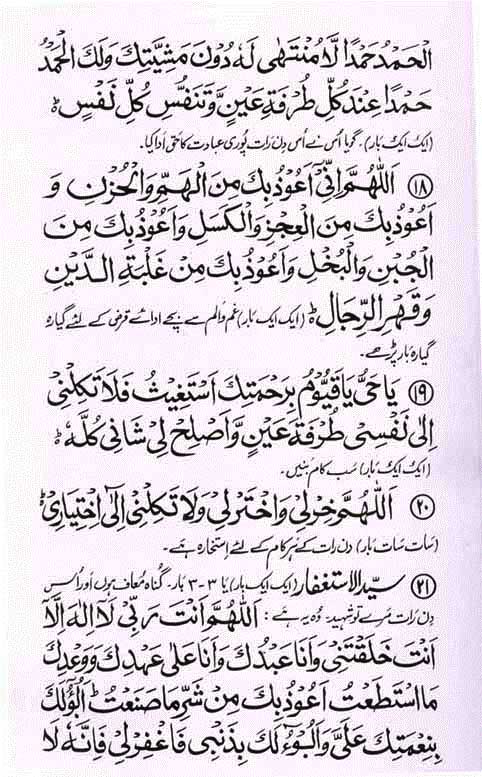 اَلْحَمْدُ حَمْدًا لَّا مُنْتَهٰى لَهٗ دُوْنَ مَشِيَّتِكَ وَلَكَ الْحَمْدُ
حَمْدًا عِنْدَ كُلِّ طَرْفَةِ عَيْنٍ وَّتَنَفُّسِ كُلِّ نَفَسٍ ؕ
(ایک ایک بار)۔ گویا اُس نے اُس دن رات پوری عبادت کا حق ادا کیا۔
⑱ اَللّٰهُمَّ اِنِّيْٓ اَعُوْذُ بِكَ مِنَ الْهَمِّ وَالْحُزْنِ وَ
اَعُوْذُ بِكَ مِنَ الْعِجْزِ وَالْكَسَلِ وَاَعُوْذُ بِكَ مِنَ
الْجُبْنِ وَالْبُخْلِ وَاَعُوْذُ بِكَ مِنْ غَلَبَةِ الدَّيْنِ
وَقَهْرِ الرِّجَالِ ؕ (ایک ایک بار) غم و الم سے بچے ادائے قرض کے لئے گیارہ
گیارہ بار پڑھے۔
⑲ يَا حَيُّ يَا قَيُّوْمُ بِرَحْمَتِكَ اَسْتَغِيْثُ فَلَا تَكِلْنِيْ
اِلٰى نَفْسِيْ طَرْفَةَ عَيْنٍ وَّاَصْلِحْ لِيْ شَانِيْ كُلَّهٗ ؕ
(ایک ایک بار) سب کام بنیں۔
⑳ اَللّٰهُمَّ خِرْ لِيْ وَاخْتَرْ لِيْ وَلَا تَكِلْنِيْ اِلٰٓى اِخْتِيَارِيْ ؕ
(سات سات بار) دن رات کے ہر کام کے لئے استخارہ ہے۔
㉑ سیّد الاستغفار (ایک ایک بار) یا ۳-۳ بار۔ گناہ معاف ہوں اور اُس
دن رات مرے تو شہید۔ وہ یہ ہے: اَللّٰهُمَّ اَنْتَ رَبِّيْ لَآ اِلٰهَ اِلَّآ
اَنْتَ خَلَقْتَنِيْ وَاَنَا عَبْدُكَ وَاَنَا عَلٰى عَهْدِكَ وَوَعْدِكَ
مَا اسْتَطَعْتُ اَعُوْذُ بِكَ مِنْ شَرِّ مَا صَنَعْتُ ؕ اَبُوْٓءُ لَكَ
بِنِعْمَتِكَ عَلَيَّ وَاَبُوْٓءُ لَكَ بِذَنْۢبِيْ فَاغْفِرْ لِيْ فَاِنَّهٗ لَا